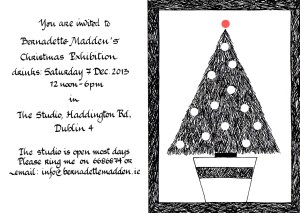 You are invited to
Bernadette Madden's
Christmas Exhibition
drinks: Saturday 7 Dec. 2013
12 noon-6pm
in
The Studio, Haddington Rd,
Dublin 4
The studio is open most days
Please ring me on 6686874 or
email: info@bernadettemadden.ie